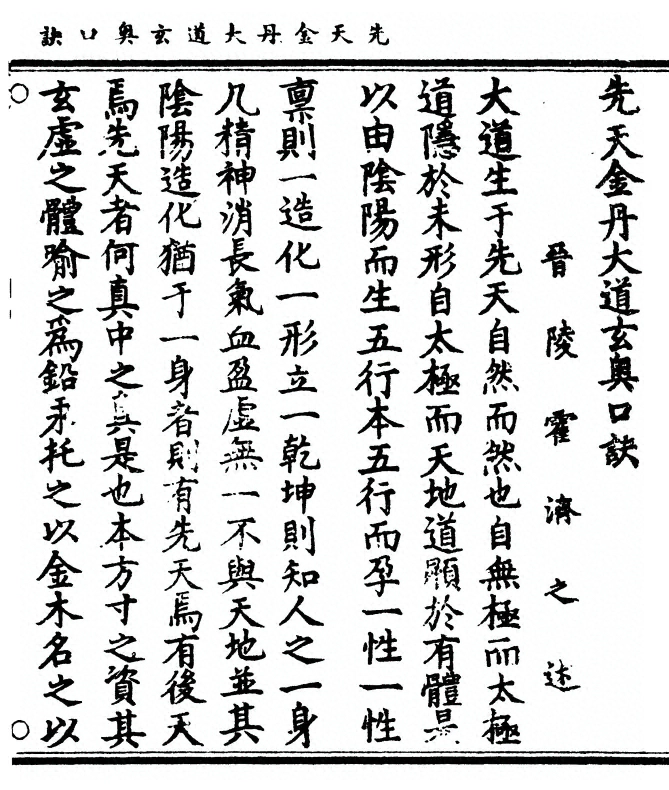 先天金丹大道玄奥口訣
先天金丹大道玄奥口訣
晉陵霍濟之述
大道生于先天自然而然也自無極而太極
道隱於未形自太極而天地道顯於有體是
以由陰陽而生五行本五行而孕一性一性
禀則一造化一形立一乾坤則知人之一身
凡精神消長氣血盈虛無一不與天地並其
陰陽造化猶于一身者則有先天焉有後天
焉先天者何真中之真是也本方寸之資其
玄虛之體喻之爲鉛汞托之以金木名之以